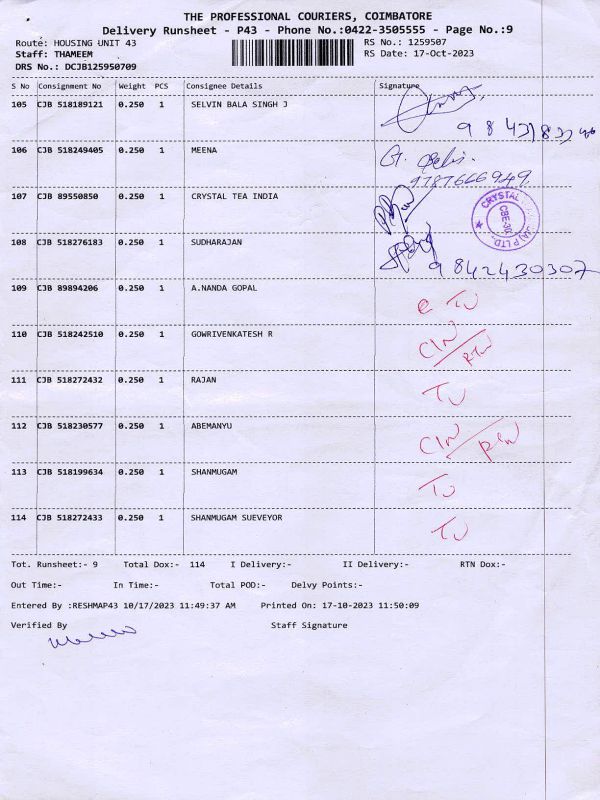 THE PROFESSIONAL COURIERS, COIMBATORE
Delivery Runsheet - P43 - Phone No.:0422-3505555 - Page No.:9
Route: HOUSING UNIT 43 RS No.: 1259507
Staff: THAMEEM RS Date: 17-Oct-2023
DRS No.: DCJB125950709
S No Consignment No Weight PCS Consignee Details Signature
105 CJB 518189121 0.250 1 SELVIN BALA SINGH J
106 CJB 518249405 0.250 1 MEENA
9787666949
107 CJB 89550850 0.250 1 CRYSTAL TEA INDIA
CRYSTAL
P LTD.
108 CJB 518276183 0.250 1 SUDHARAJAN
9842430307
109 CJB 89894206 0.250 1 A.NANDA GOPAL
110 CJB 518242510 0.250 1 GOWRIVENKATESH R
111 CJB 518272432 0.250 1 RAJAN
112 CJB 518230577 0.250 1 ABEMANYU
113 CJB 518199634 0.250 1 SHANMUGAM
114 CJB 518272433 0.250 1 SHANMUGAM SUEVEYOR
Tot. Runsheet:- 9 Total Dox:- 114 I Delivery:- II Delivery:- RTN Dox:-
Out Time:- In Time:- Total POD:- Delvy Points:-
Entered By :RESHMAP43 10/17/2023 11:49:37 AM Printed On: 17-10-2023 11:50:09
Verified By Staff Signature